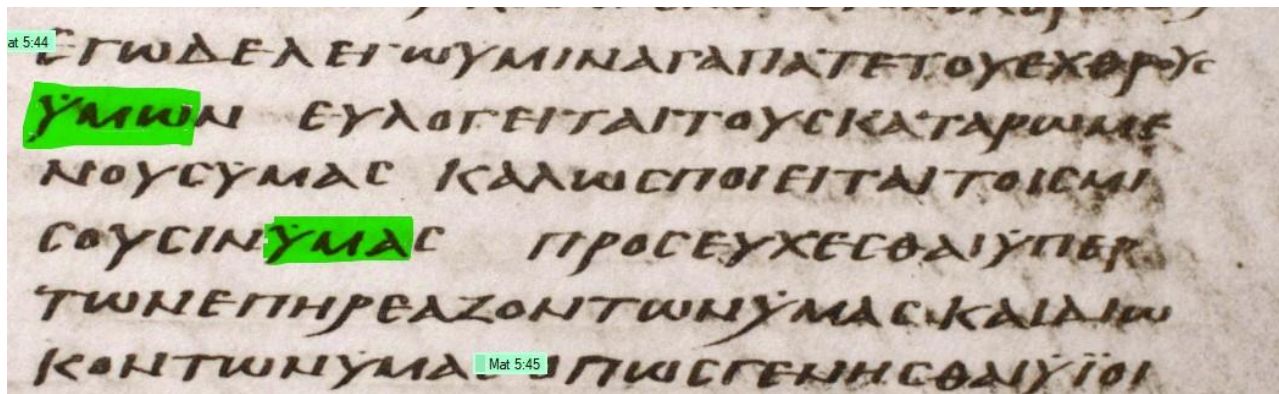 at 5:44 ΕΓΩΔΕΛΕΓΩΥΜΙΝΑΓΑΠΑΤΕΤΟΥΕΧΘΡΟΥC
ΫΜΩΝ ΕΥΛΟΓΕΙΤΑΙΤΟΥCΚΑΤΑΡΩΜΕ
ΝΟΥCΫΜΑC ΚΑΛΩCΠΟΙΕΙΤΑΙΤΟΙCΜΙ
CΟΥCΙΝΫΜΑC ΠΡΟCΕΥΧΕCΘΑΙΫΠΕΡ
ΤΩΝΕΠΗΡΕΑΖΟΝΤΩΝΫΜΑC·ΚΑΙΔΙΩ
ΚΟΝΤΩΝΫΜΑC Mat 5:45 ΟΠΩCΓΕΝΗCΘΑΙΫΪΟΙ